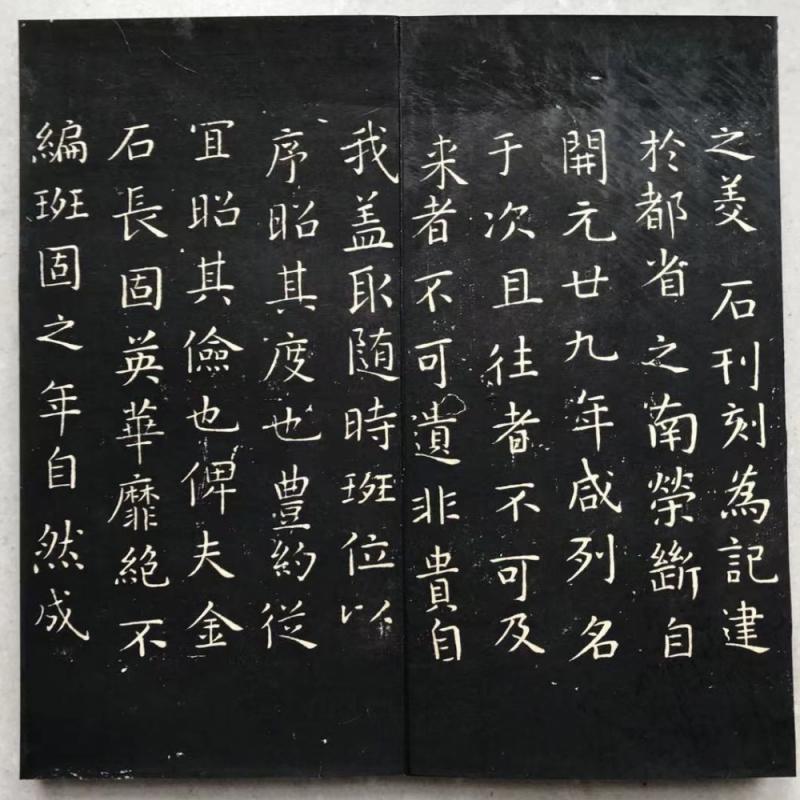 之美 石刊刻為記建
於都省之南榮斷自
開元廿九年咸列名
于次且往者不可及
来者不可遺非貴自
我盖取随時班位以
序昭其度也豊約從
宜昭其儉也俾夫金
石長固英華靡絶不
編班固之年自然成